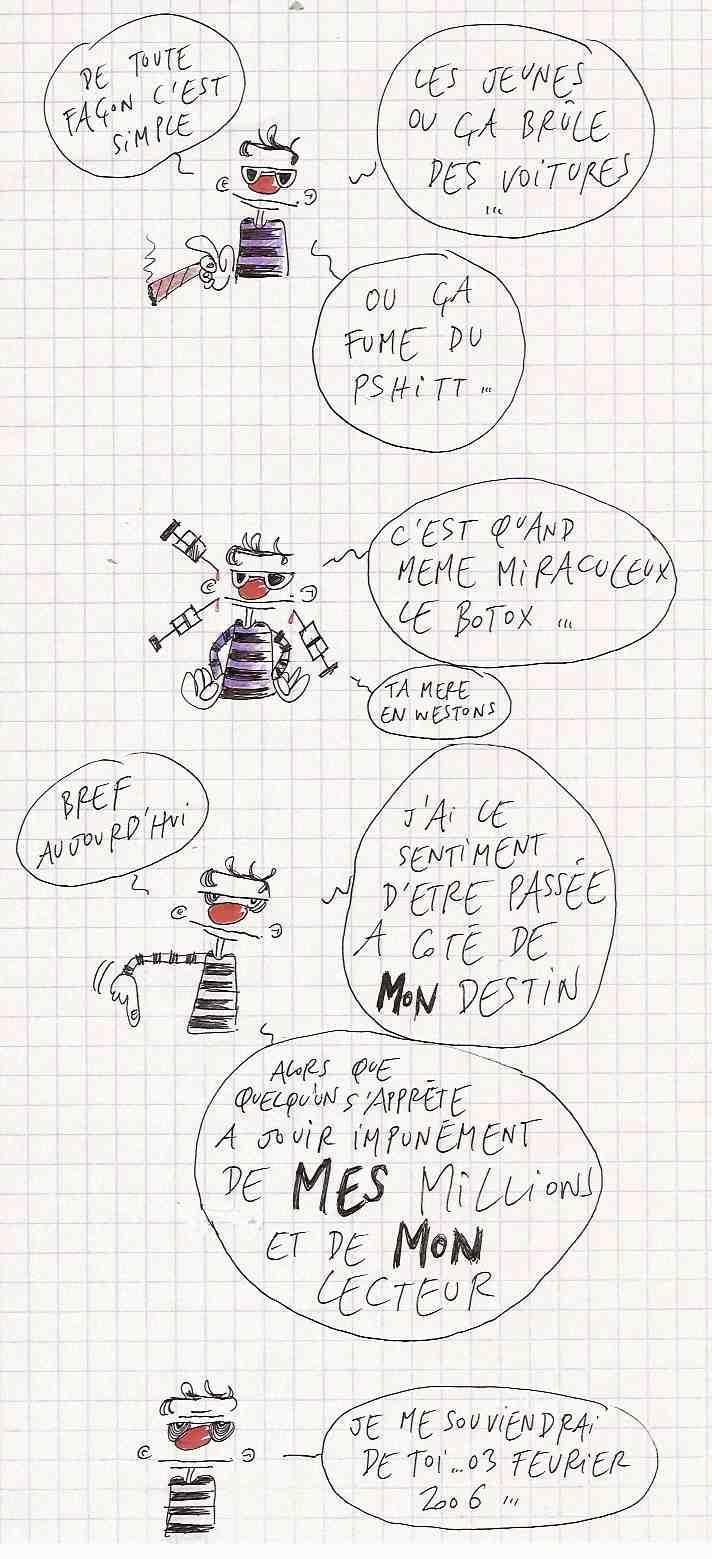 DE TOUTE
FAÇON C'EST
SIMPLE
LES JEUNES
OU ÇA BRÛLE
DES VOITURES
...
OU ÇA
FUME DU
PSHITT ...
C'EST QUAND
MEME MIRACULEUX
LE BOTOX ...
TA MERE
EN WESTONS
BREF
AUJOURD'HUI
J'AI LE
SENTIMENT
D'ETRE PASSÉE
A COTÉ DE
MON DESTIN
ALORS QUE
QUELQU'UN S'APPRÊTE
A JOUIR IMPUNÉMENT
DE MES MILLIONS
ET DE MON
LECTEUR
JE ME SOUVIENDRAI
DE TOI...03 FEVRIER
2006 ...